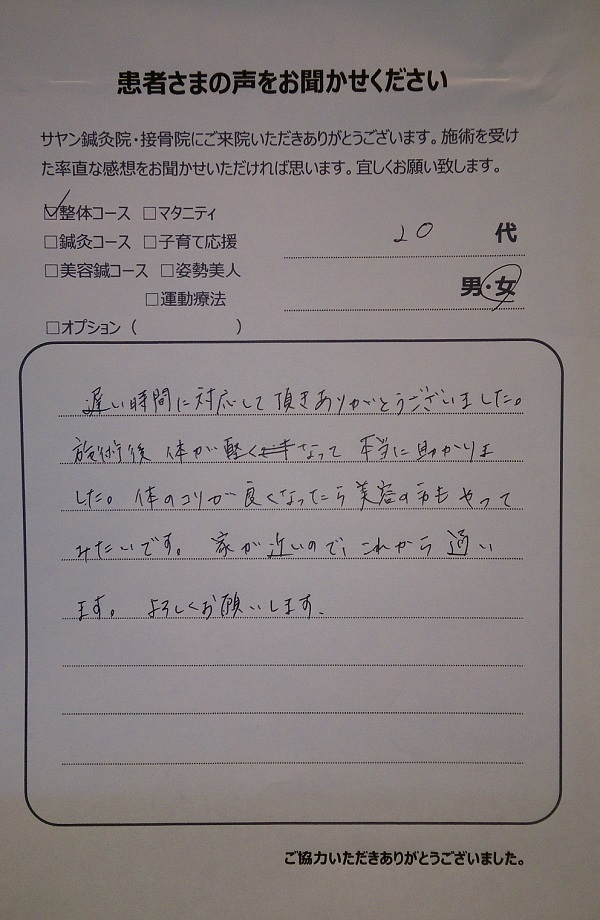 患者さまの声をお聞かせください
サヤン鍼灸院・接骨院にご来院いただきありがとうございます。施術を受け
た率直な感想をお聞かせいただければ思います。宜しくお願い致します。
☑整体コース □マタニティ
□鍼灸コース □子育て応援
20 代
□美容鍼コース □姿勢美人
男・女
□運動療法
□オプション（ ）
遅い時間に対応して頂きありがとうございました。
施術後 体が軽くなって 本当に助かりま
した。体のコリが良くなったら美容の方もやって
みたいです。家が近いので、これから通い
ます。よろしくお願いします。
ご協力いただきありがとうございました。